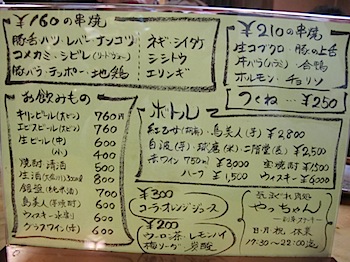 ¥160の串焼
豚舌・ハツ・レバー・ナンコツ
コメカミ・シビレ
豚バラ・テッポー・地鶏
ネギ・シイタケ
シシトウ
エリンギ
¥210の串焼
生コブクロ・豚の上舌
合鴨
ホルモン・チョリソ
つくね…¥250
お飲みもの
キリンビール(大ビン) 760円
エビスビール(大ビン) 760
生ビール(中) 600
(小) 400
焼酎・清酒 500
生酒 800
銀盤(純米酒) 700
島美人(芋焼酎) 600
ウィスキー水割 600
グラスワイン(赤) 600
ボトル
島美人(芋) ¥2,800
白波(芋)・球磨(米)・二階堂(麦) ¥2,500
赤ワイン 750ml ¥3000
ハーフ ¥1,500
宝焼酎 ¥1500
ウィスキー ¥6000
¥300
コーラ・オレンジジュース
¥200
ウーロン茶・レモン・ハイ
梅ソーダ・炭酸
やっちゃん
日・月・祝 休業
17:30〜22:00迄